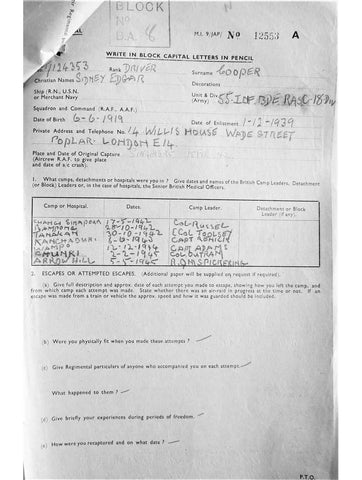 BLOCK
No
B.A. 8
M.I. 9/JAP/ No 12553 A
WRITE IN BLOCK CAPITAL LETTERS IN PENCIL
T/124353 Rank DRIVER Surname COOPER
Christian Names SIDNEY EDGAR Decorations
Ship (R.N., U.S.N. or Merchant Navy
Unit & Div (Army) 55 INF BDE RASC 18 DIV
Squadron and Command (R.A.F., A.A.F.)
Date of Birth 6-6-1919 Date of Enlistment 1-12-1939
Private Address and Telephone No. 14 WILLIS HOUSE WADE STREET
POPLAR. LONDON E14.
Place and Date of Original Capture
(Aircrew R.A.F. to give place
and date of a/c crash)
1. What camps, detachments or hospitals were you in? Give dates and names of the British Camp Leaders, Detachment
(or Block) Leaders or, in the case of hospitals, the Senior British Medical Officers.
Camp or Hospital. Dates. Camp Leader. Detachment or Block Leader (if any).
CHANGI SINGAPORE 17-5-1942
28-10-1942
30-10-1942 COL TOOLSEY
CAPT
12-12-1944 CAPT ADAMS
2-2-1945 COL OUTRAM
ARROW HILL 5-5-1945 R.Q.M.S PICKERING
2. ESCAPES OR ATTEMPTED ESCAPES. (Additional paper will be supplied on request if required).
(a) Give full description and approx. date of each attempt you made to escape, showing how you left the camp, and
from which camp each attempt was made. State whether there was an air-raid in progress at the time or not. If an
escape was made from a train or vehicle the approx. speed and how it was guarded should be included.
(b) Were you physically fit when you made these attempts?
(c) Give Regimental particulars of anyone who accompanied you on each attempt.
What happened to them?
(d) Give briefly your experiences during periods of freedom.
(e) How were you recaptured and on what date?
P.T.O.